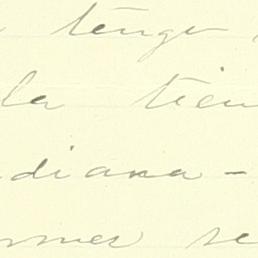 tengo
la tien
diana-
mes se